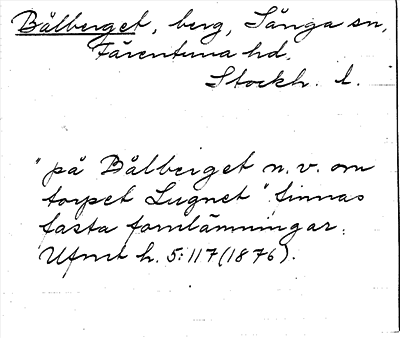 Bålberget, berg, Sånga sn,
Färentuna hd.
Stockh. l.
"på Bålberget n. v. om
torpet Lugnet" finnas
fasta fornlämningar.
Ufmt h. 5:117 (1876).